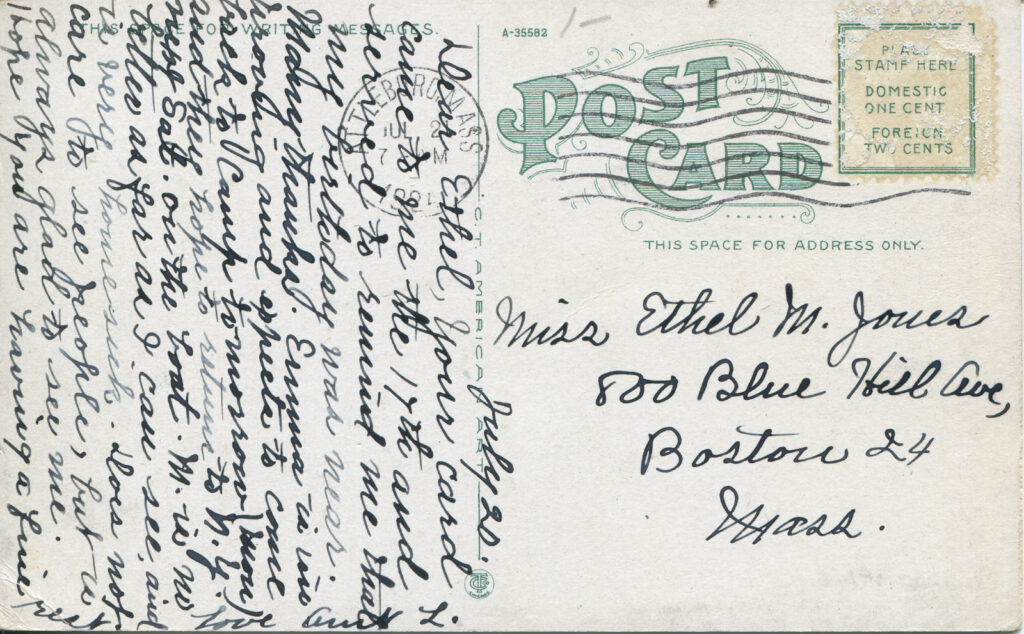 THIS SPACE FOR WRITING MESSAGES.
A-35582
POST
CARD
PLACE
STAMP HERE
DOMESTIC
ONE CENT
FOREIGN
TWO CENTS
THIS SPACE FOR ADDRESS ONLY.
MASS
JUL
C.T. AMERICAN ART
Miss Ethel M. Jones
800 Blue Hill Ave,
Boston 24
Mass.
July 20.
Dear Ethel, Your card
came to me the 17th and
served to remind me that
my birthday was near.
Many thanks. Emma is im
proving and expects to come
back to Camp tomorrow (Mon)
and they hope to return to N.Y.
next Sat. on the boat. M. is no
better as far as I can see, and
is very homesick. Does not
care to see people, but is
always glad to see me.
Hope you are having a fine
rest. Love Aunt L.